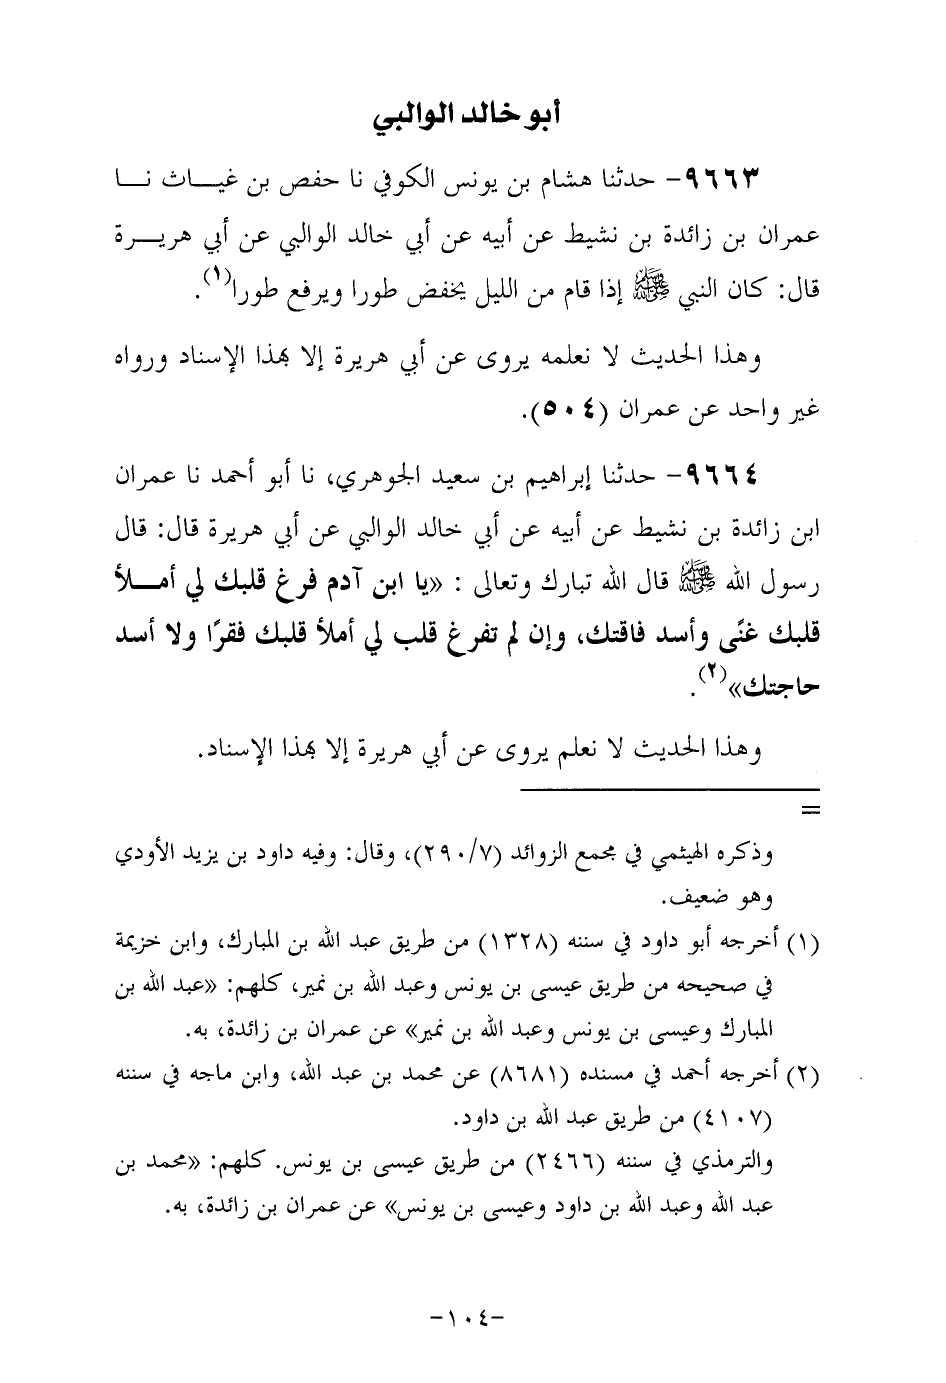 أبو خالد الوالبي
٩٦٦٣- حدثنا هشام بن يونس الكوفي نا حفص بن غيـــاث نـــا
عمران بن زائدة بن نشيط عن أبيه عن أبي خالد الوالبي عن أبي هريـــرة
قال: كان النبي ﷺ إذا قام من الليل يخفض طورا ويرفع طورا(١).
وهذا الحديث لا نعلمه يروى عن أبي هريرة إلا بهذا الإسناد ورواه
غير واحد عن عمران (٥٠٤).
٩٦٦٤- حدثنا إبراهيم بن سعيد الجوهري، نا أبو أحمد نا عمران
ابن زائدة بن نشيط عن أبيه عن أبي خالد الوالبي عن أبي هريرة قال: قال
رسول الله ﷺ قال الله تبارك وتعالى : «يا ابن آدم فرغ قلبك لي أمـــلأ
قلبك غنًى وأسد فاقتك، وإن لم تفرغ قلب لي أملأ قلبك فقرًا ولا أسد
حاجتك»(٢).
وهذا الحديث لا نعلم يروى عن أبي هريرة إلا بهذا الإسناد.
=
وذكره الهيثمي في مجمع الزوائد (٢٩٠/٧)، وقال: وفيه داود بن يزيد الأودي
وهو ضعيف.
(١) أخرجه أبو داود في سننه (١٣٢٨) من طريق عبد الله بن المبارك، وابن خزيمة
في صحيحه من طريق عيسى بن يونس وعبد الله بن نمير، كلهم: «عبد الله بن
المبارك وعيسى بن يونس وعبد الله بن نمير» عن عمران بن زائدة، به.
(٢) أخرجه أحمد في مسنده (٨٦٨١) عن محمد بن عبد الله، وابن ماجه في سننه
(٤١٠٧) من طريق عبد الله بن داود.
والترمذي في سننه (٢٤٦٦) من طريق عيسى بن يونس. كلهم: «محمد بن
عبد الله وعبد الله بن داود وعيسى بن يونس» عن عمران بن زائدة، به.
-١٠٤-